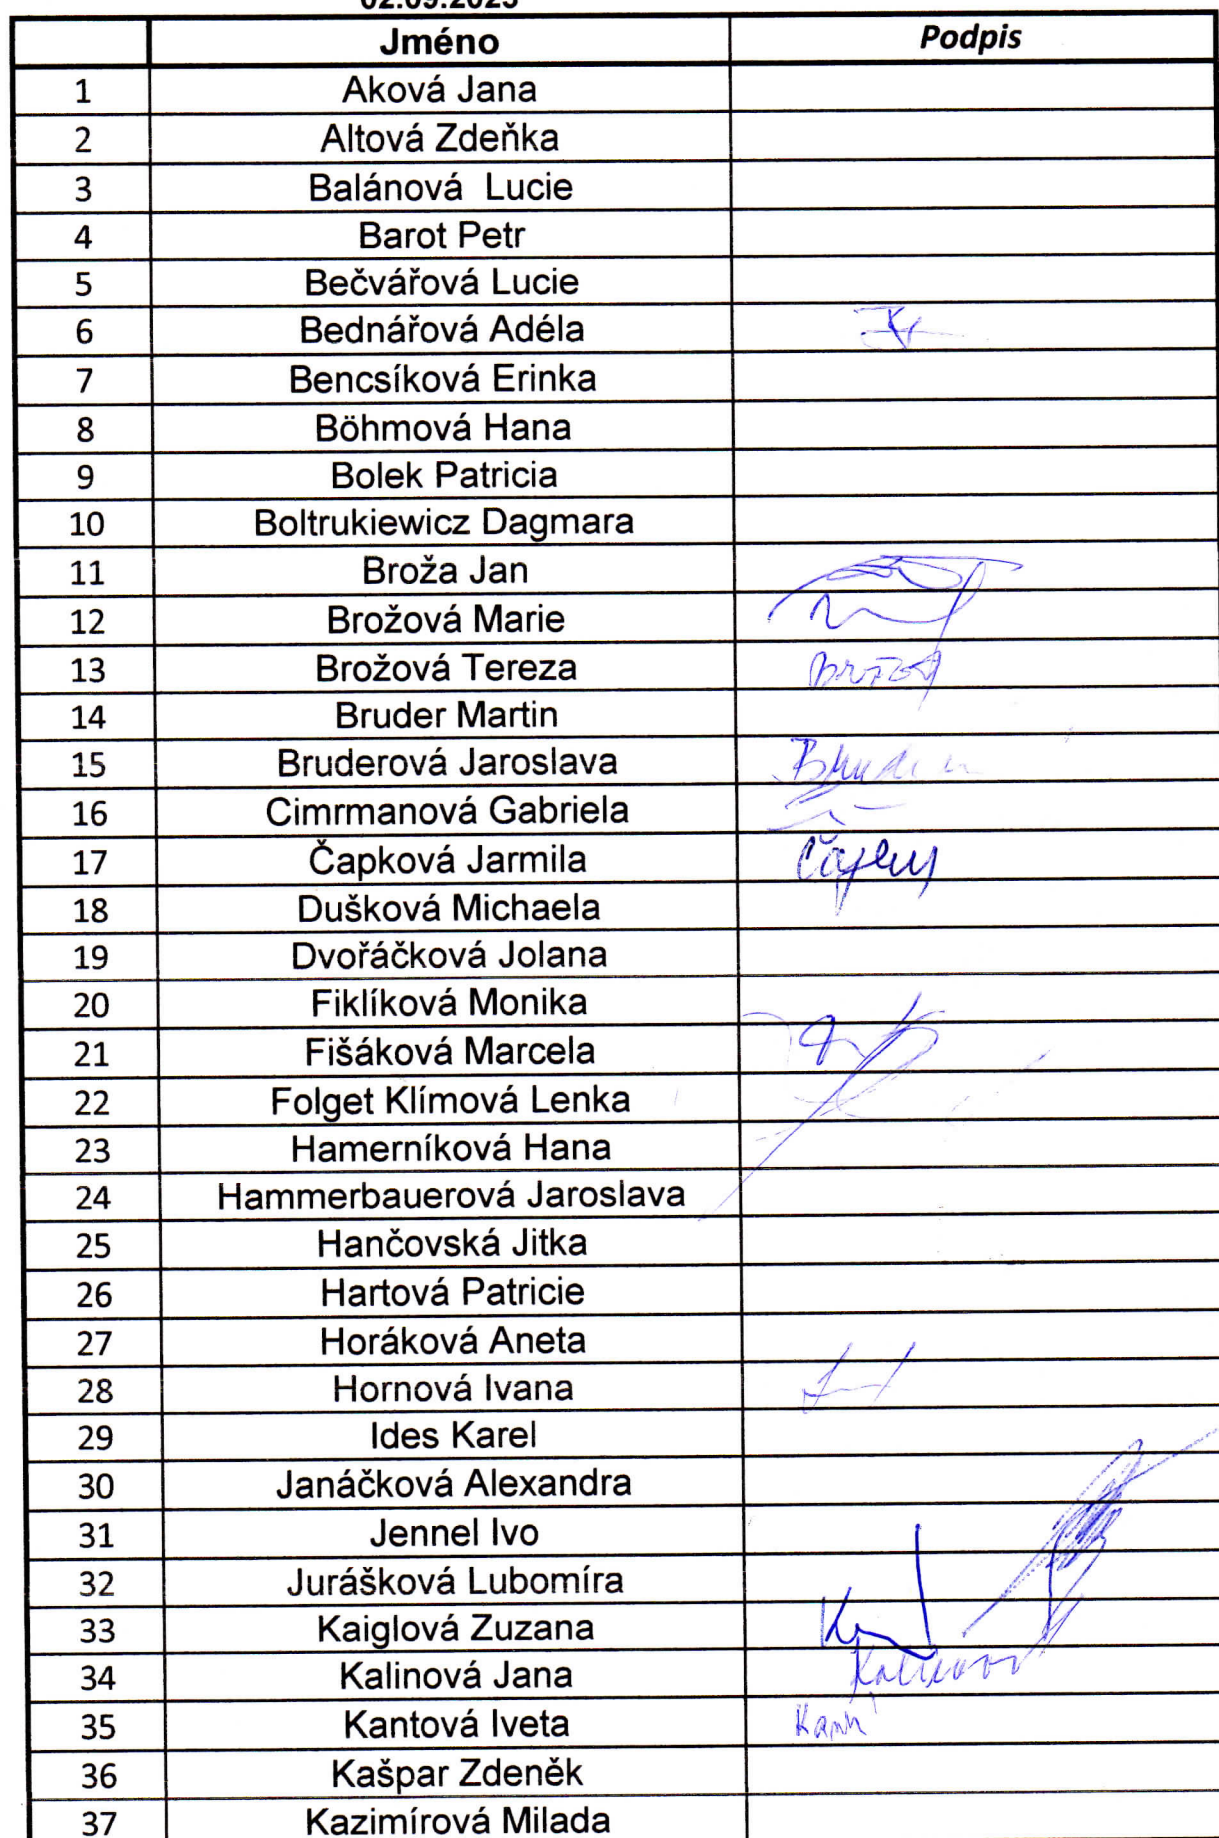 02.09.2023
Jméno Podpis
1 Aková Jana
2 Altová Zdeňka
3 Balánová Lucie
4 Barot Petr
5 Bečvářová Lucie
6 Bednářová Adéla
7 Bencsíková Erinka
8 Böhmová Hana
9 Bolek Patricia
10 Boltrukiewicz Dagmara
11 Broža Jan
12 Brožová Marie
13 Brožová Tereza
14 Bruder Martin
15 Bruderová Jaroslava
16 Cimrmanová Gabriela
17 Čapková Jarmila
18 Dušková Michaela
19 Dvořáčková Jolana
20 Fiklíková Monika
21 Fišáková Marcela
22 Folget Klímová Lenka
23 Hamerníková Hana
24 Hammerbauerová Jaroslava
25 Hančovská Jitka
26 Hartová Patricie
27 Horáková Aneta
28 Hornová Ivana
29 Ides Karel
30 Janáčková Alexandra
31 Jennel Ivo
32 Jurášková Lubomíra
33 Kaiglová Zuzana
34 Kalinová Jana
35 Kantová Iveta
36 Kašpar Zdeněk
37 Kazimírová Milada